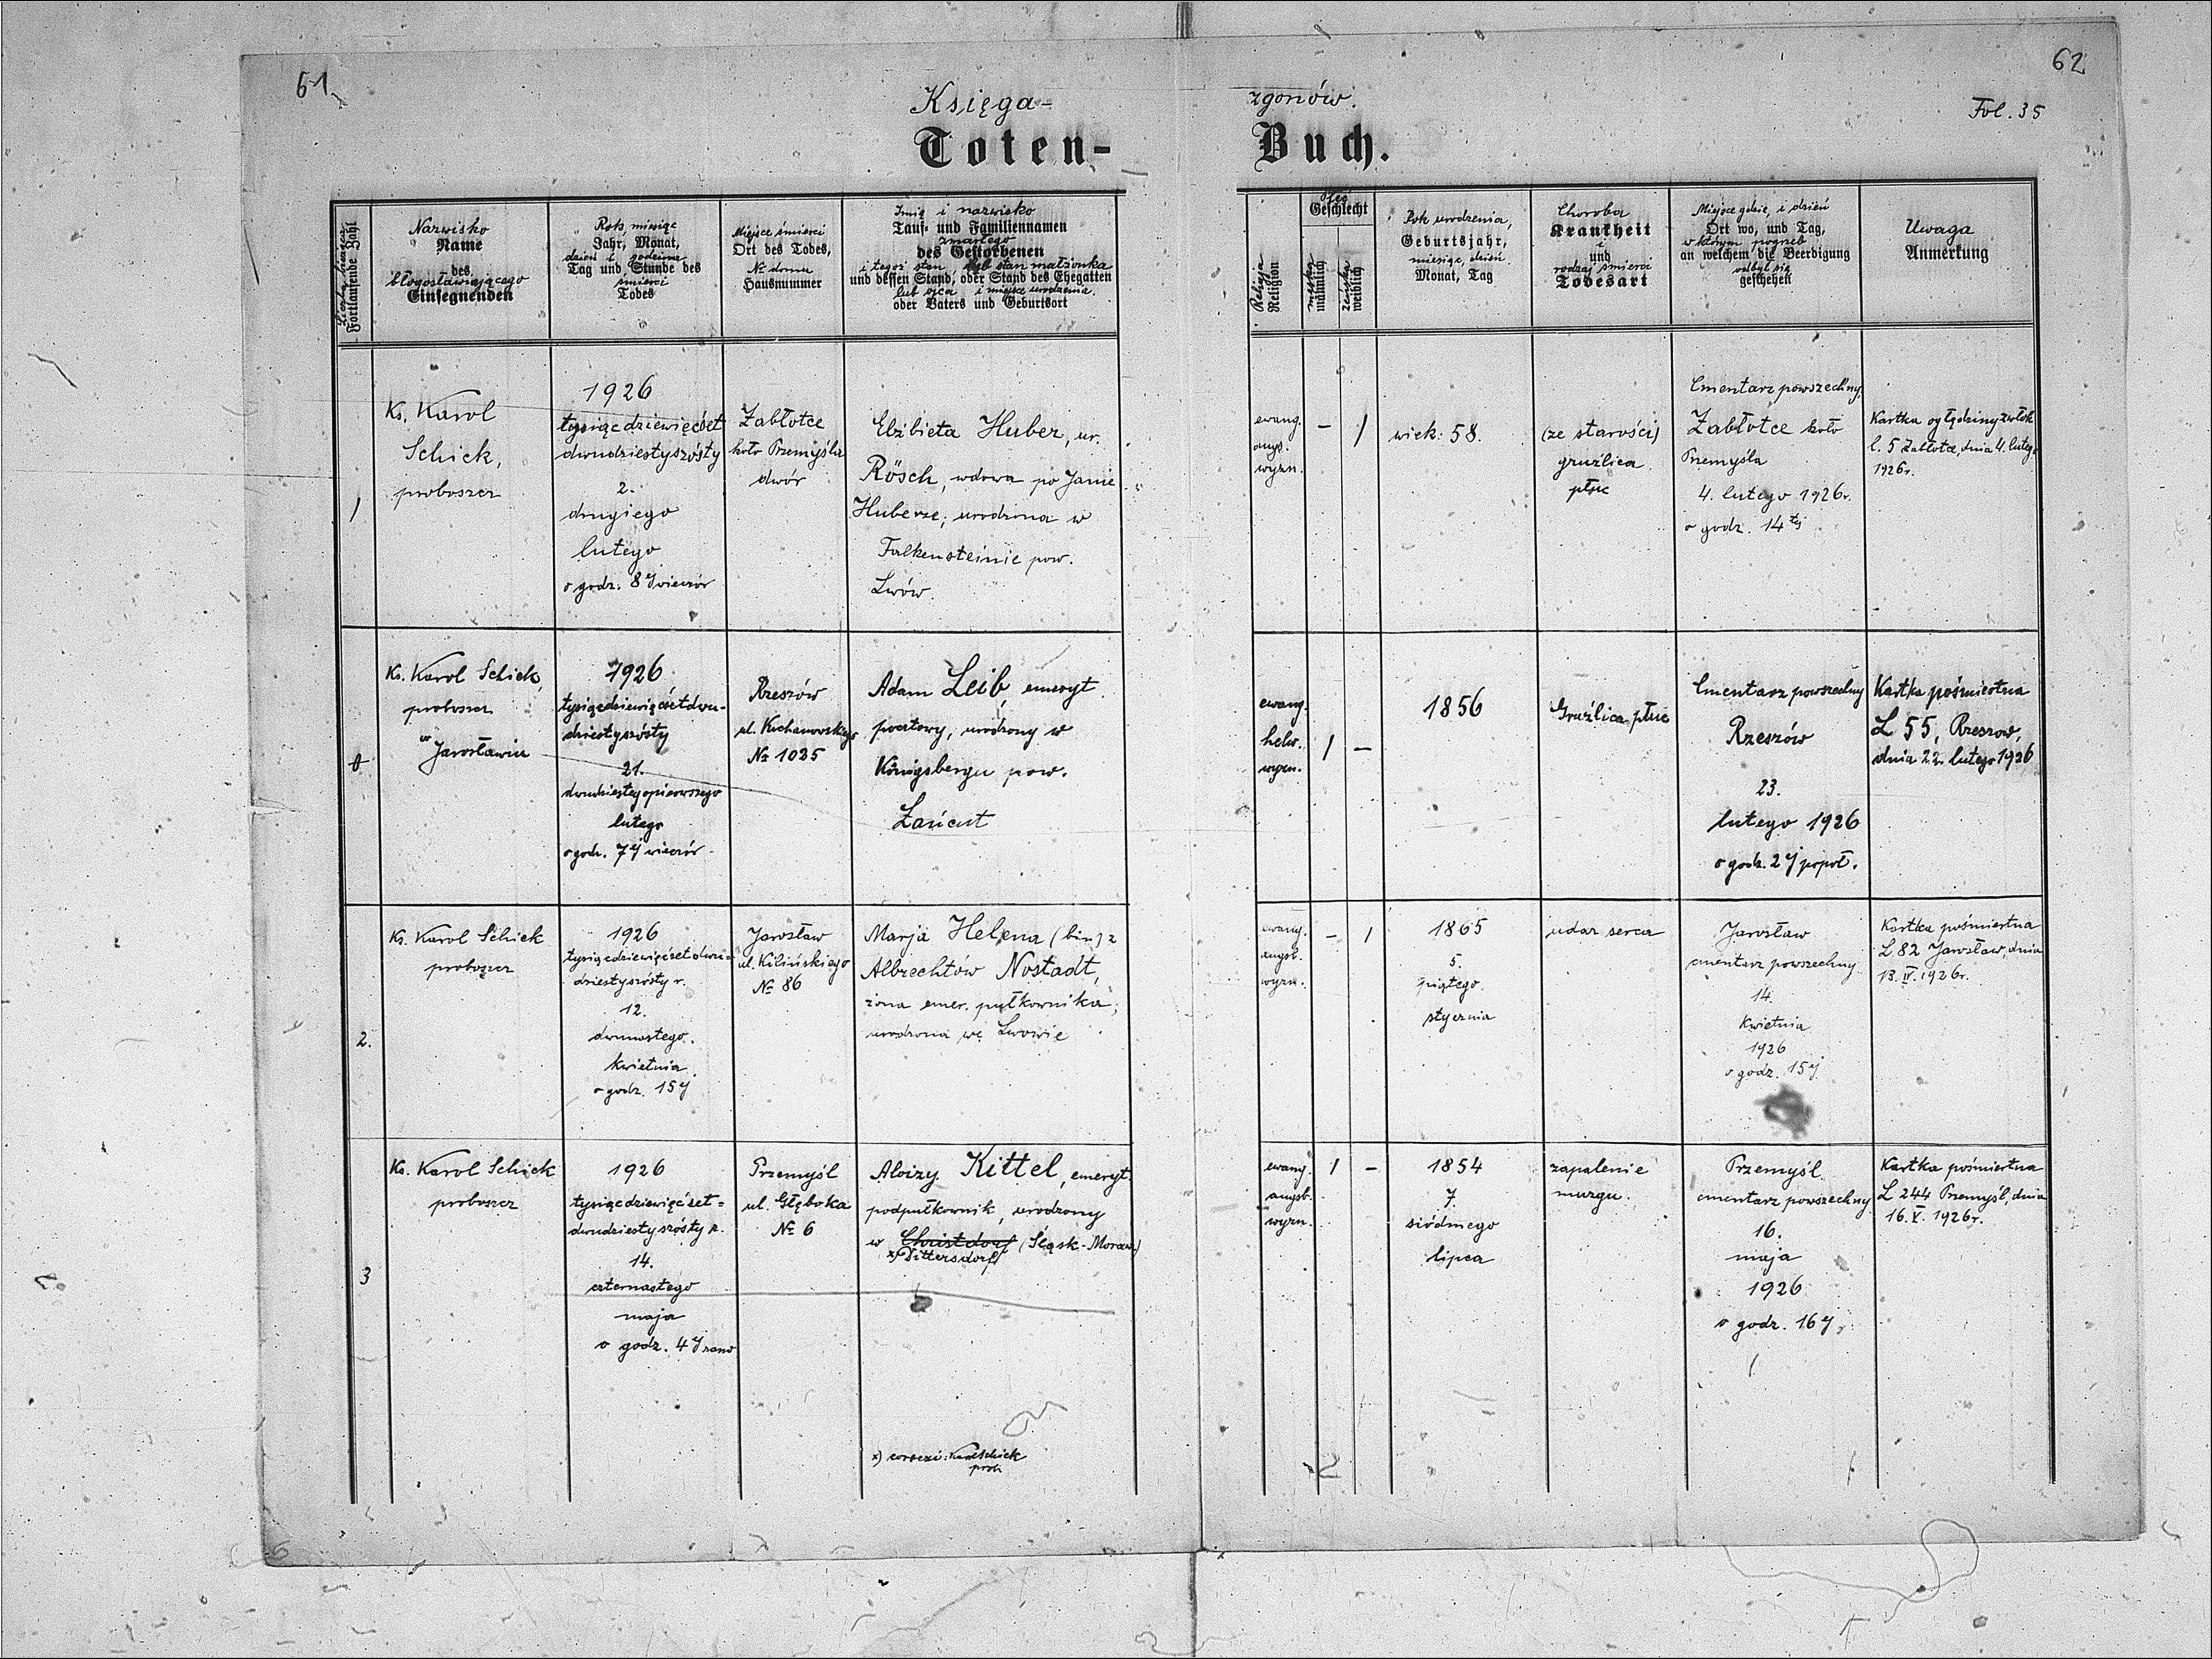 61
62
Fol. 35
Księga- zgonów.
Toten- Buch.
Liczba bieżąca
Fortlaufende Zahl
Nazwisko
Name
des
błogosławiającego
Einsegnenden
Rok, miesiąc
Jahr, Monat,
dzień i godzina
Tag und Stunde des
śmierci
Todes
Miejsce śmierci
Ort des Todes,
№ domu
Hausnummer
Imię i nazwisko
Tauf- und Familiennamen
zmarłego
des Gestorbenen
i tegoż stan, lub stan małżonka
und dessen Stand, oder Stand des Ehegatten
lub ojca i miejsce urodzenia.
oder Vaters und Geburtsort
Religja
Religion
Płeć
Geschlecht
męska
männlich
żeńska
weiblich
Rok urodzenia,
Geburtsjahr,
miesiąc, dzień
Monat, Tag
Choroba
Krankheit
i
und
rodzaj śmierci
Todesart
Miejsce gdzie, i dzień
Ort wo, und Tag,
w którym pogrzeb
an welchem die Beerdigung
odbył się
geschehen
Uwaga
Anmerkung
1
Ks. Karol
Schick,
proboszcz
1926
tysiąc dziewięćset
dwudziestyszósty
2.
drugiego
lutego
o godz. 8 ej wieczór
Zabłotce
koło Przemyśla
dwór
Elżbieta Huber, ur.
Rösch, wdowa po Janie
Huberze, urodzona w
Falkensteinie pow.
Lwów.
ewang.
augs.
wyzn.
— /
wiek: 58.
(ze starości)
gruźlica
płuc
Cmentarz powszechny
Zabłotce koło
Przemyśla
4. lutego 1926r.
o godz. 14 tej
Kartka oględziny zwłok
l. 5 Zabłotce, dnia 4. lutego
1926r.
Ks. Karol Schick,
proboszcz
w
Jarosławiu
1926
tysiącdziewięćsetdwu-
dziestyszósty
21.
dwudziestegopierwszego
lutego
o godz. 7 ej wieczór
Rzeszów
ul. Kochanowskiego
№ 1025
Adam Leib, emeryt
pocztowy, urodzony w
Königsbergu pow.
Łańcut
ewang.
helw.
wyzn.
/ —
1856
Gruźlica płuc
Cmentarz powszechny
Rzeszów
23.
lutego 1926
o godz. 2 ej popoł.
Kartka pośmiertna
L 55, Rzeszow,
dnia 22. lutego 1926
2.
Ks. Karol Schick
proboszcz
1926
tysiącdziewięćsetdwu-
dziestyszósty r.
12.
dwunastego
kwietnia
o godz. 15 ej
Jarosław
ul. Kilińskiego
№ 86
Marja Helena (bin.) z
Albrechtów Nostadt,
żona emer. pułkownika,
urodzona we Lwowie
ewang.
augsb.
wyzn.
— /
1865
5.
piątego
stycznia
udar serca
Jarosław
cmentarz powszechny
14.
kwietnia
1926
o godz. 15 ej
Kartka pośmiertna
L 82 Jarosław, dnia
13. IV. 1926r.
3
Ks. Karol Schick
proboszcz
1926
tysiącdziewięćset=
dwudziestyszósty r.
14.
czternastego
maja
o godz. 4 ej rano
Przemyśl
ul. Głęboka
№ 6
Aloizy Kittel, emeryt.
podpułkownik, urodzony
w Christdorf (Śląsk-Moraw.)
x) Dittersdorf
ewang.
augsb.
wyzn.
/ —
1854
7
siódmego
lipca
zapalenie
mózgu.
Przemyśl
cmentarz powszechny
16.
maja
1926
o godz. 16 ej
Kartka pośmiertna
L 244 Przemyśl, dnia
16. V. 1926r.
x) correxi: Karol Schick
prob.